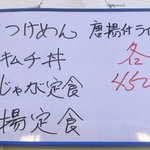 つけめん
キムチ丼
じゃな定食
揚定食
唐揚付ライ
各
450